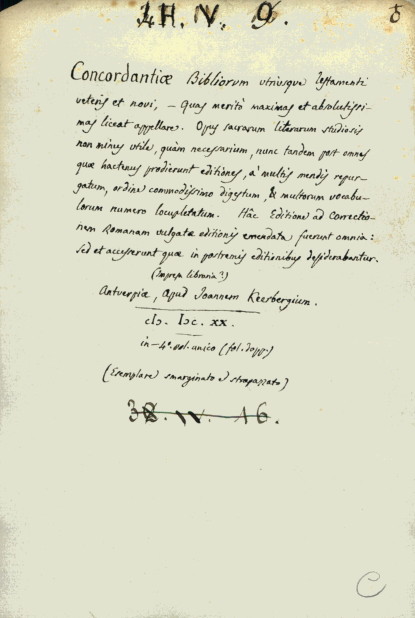 IV. 9.
Concordantiæ Bibliorum utriusque Testamenti
veteris et novi, – Quas meritò maximas et absolutissi-
mas liceat appellare. Opus sacrarum literarum studiosis
non minus utile, quàm necessarium, nunc tandem post omnes
quæ hactenus prodierunt editiones, à multis mendis repur-
gatum, ordine commodissimo digestum, & multorum vocabu-
lorum numero locupletatum. Hâc Editione ad Correctio-
nem Romanam vulgatæ editionis emendata fuerunt omnia:
sed et accesserunt quæ in postremis editionibus desiderabantur.
(Impresa libraria?)
Antverpiæ, Apud Joannem Keerbergium.
cIↄ. Iↄc. xx.
in-4º. vol. unico (fol. dopp.)
(Esemplare smarginato e strapazzato)
38. IV. 16.
C